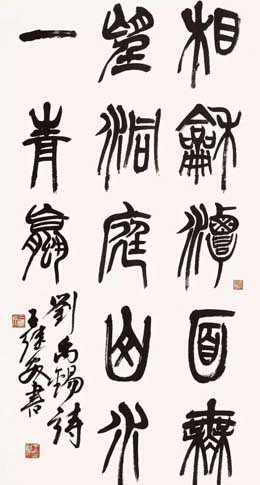 相龢潭面無
望洞庭山水
一青蠃
劉禹錫詩
王 書